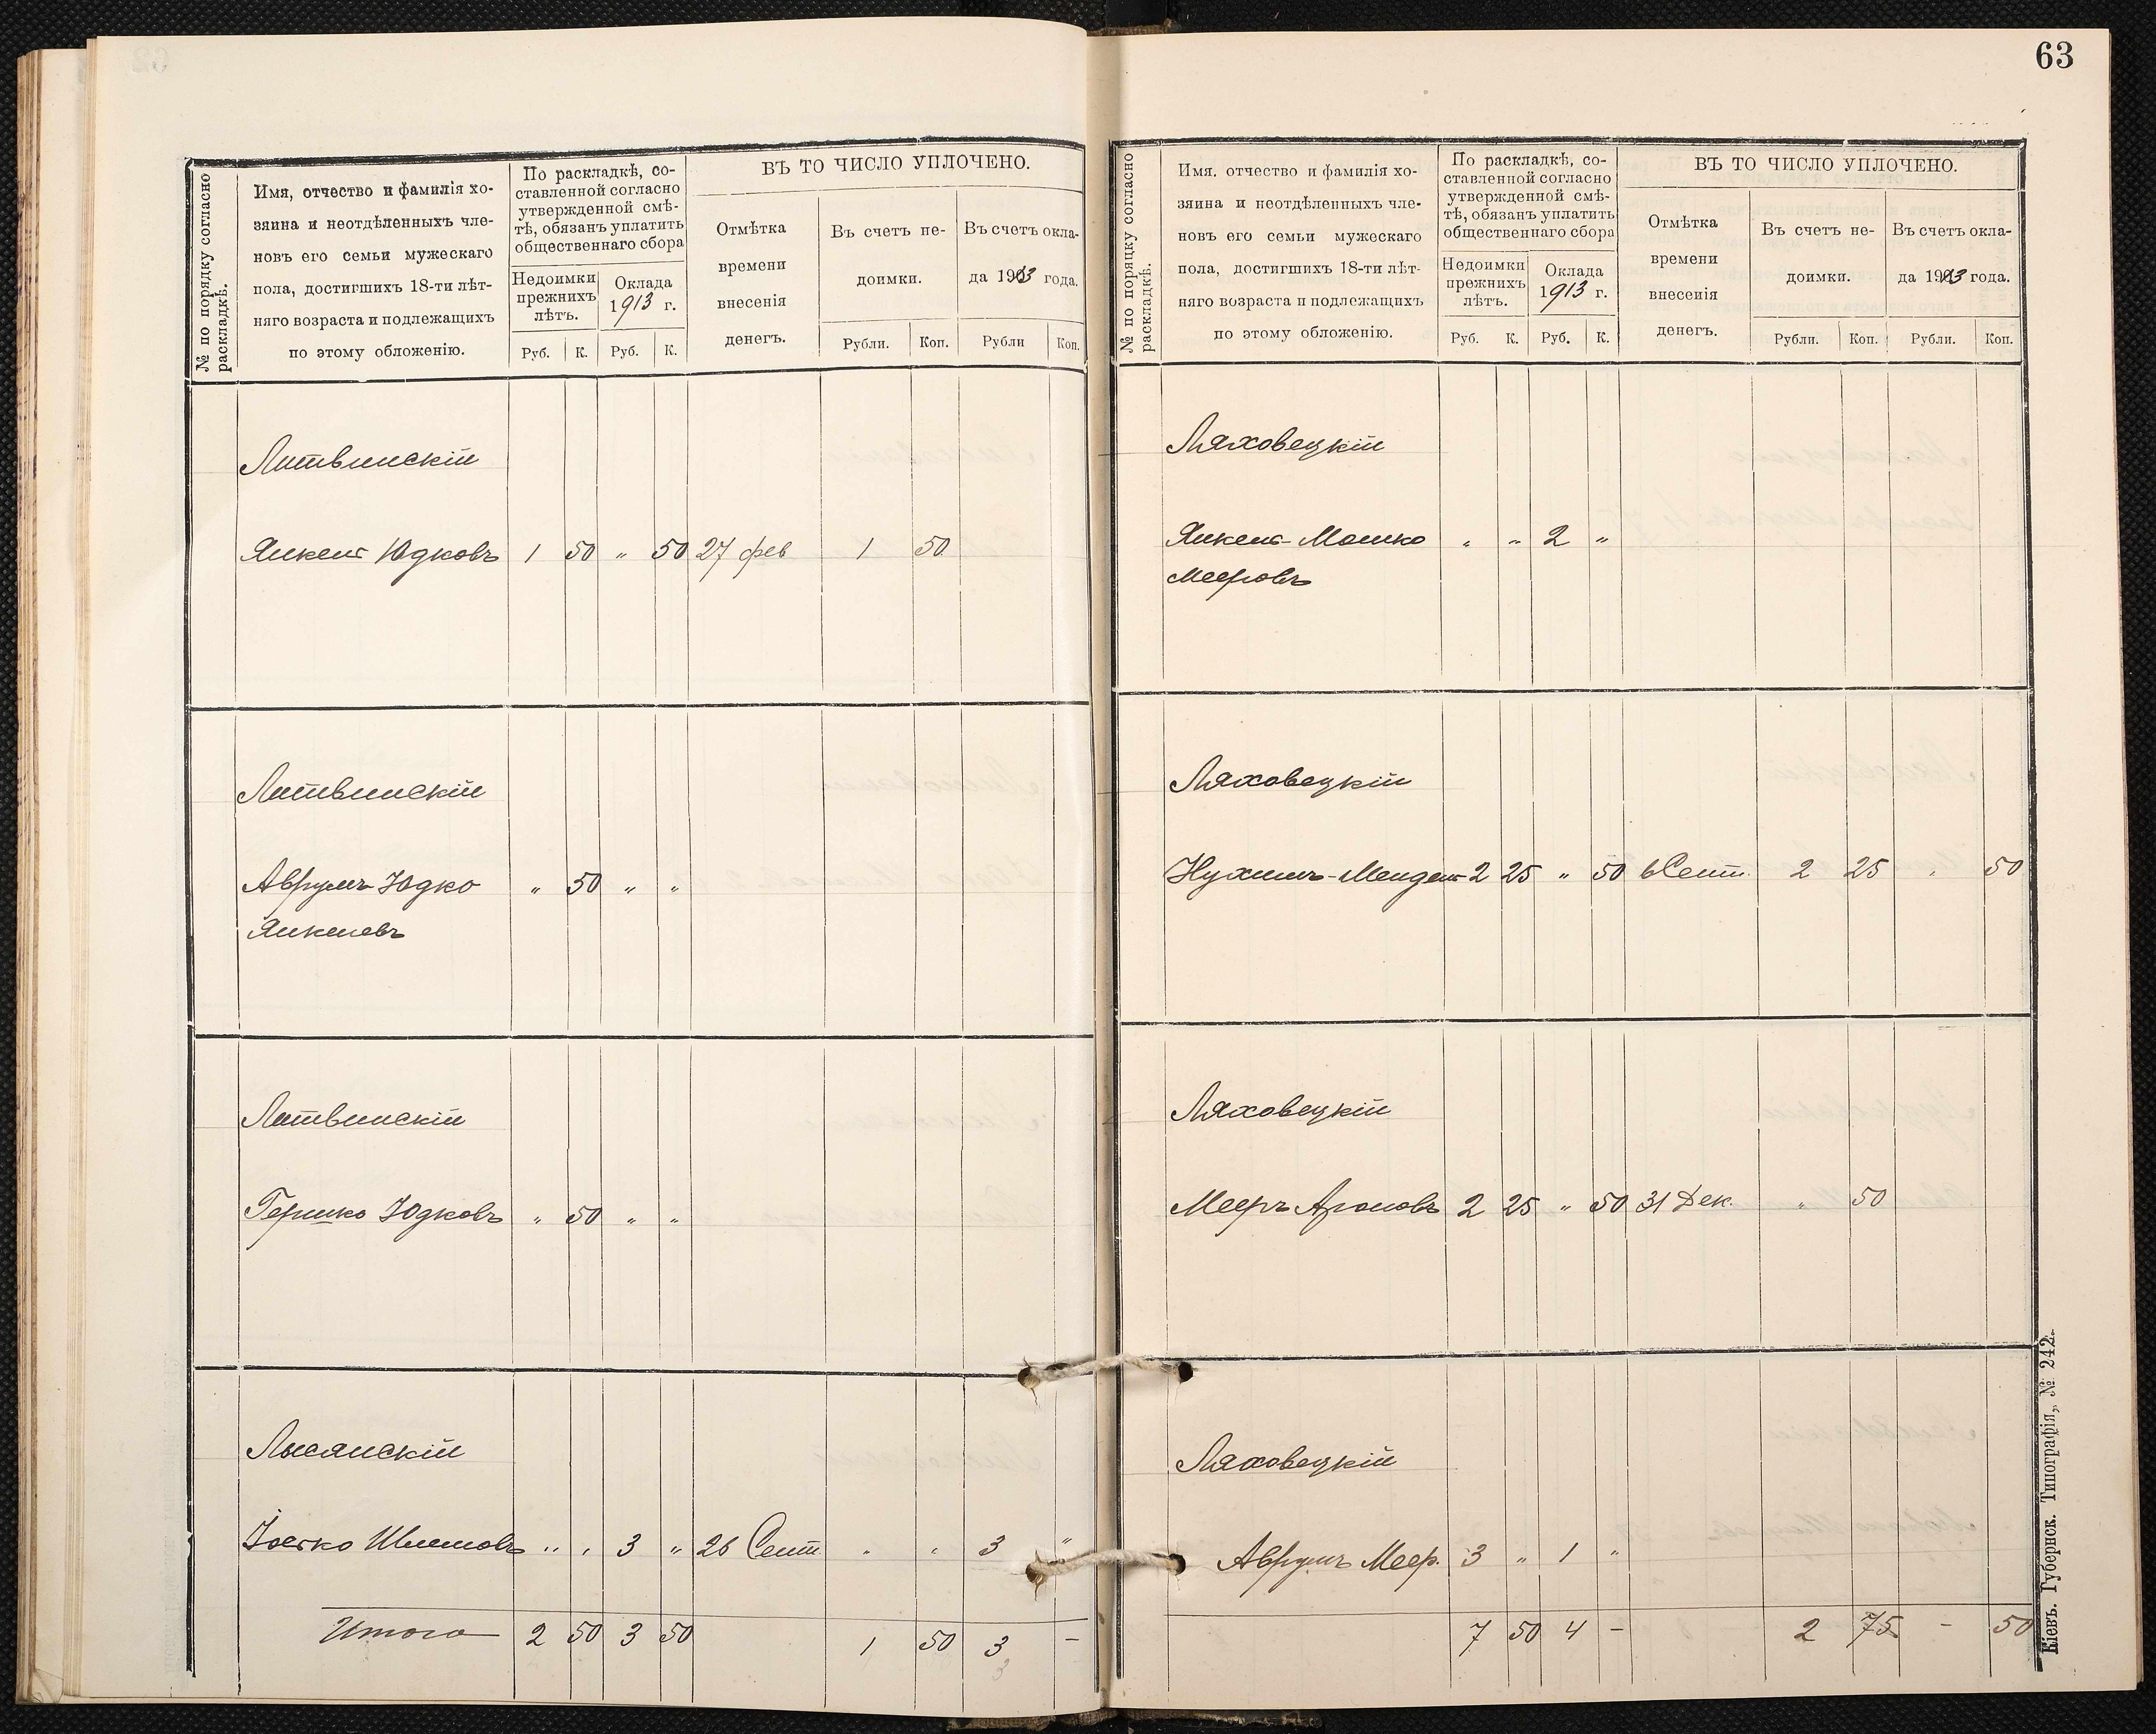 63
№ по порядку согласно
раскладкѣ.
Имя, отчество и фамилія хо-
зяина и неотдѣленныхъ чле-
новъ его семьи мужескаго
пола, достигшихъ 18-ти лѣт-
няго возраста и подлежащихъ
по этому обложенію.
По раскладкѣ, со-
ставленной согласно
утвержденной смѣ-
тѣ, обязанъ уплатить
общественнаго сбора
Недоимки
прежнихъ
лѣтъ.
Оклада
1913 г.
Руб. К. Руб. К.
ВЪ ТО ЧИСЛО УПЛОЧЕНО.
Отмѣтка
времени
внесенія
денегъ.
Въ счетъ не-
доимки.
Въ счетъ окла-
да 1913 года.
Рубли. Коп. Рубли Коп.
Литвинскій
Янкель Юдковъ 1 50 „ 50 27 фев 1 50
Литвинскій
Аврумъ Юдко „ 50 „ „
Янкелевъ
Литвинскій
Гершко Юдковъ „ 50 „ „
Лысянскій
Іосько Шлемовъ „ „ 3 „ 26 Сент. „ „ 3 „
Итого 2 50 3 50 1 50 3 —
3
№ по порядку согласно
раскладкѣ.
Имя, отчество и фамилія хо-
зяина и неотдѣленныхъ чле-
новъ его семьи мужескаго
пола, достигшихъ 18-ти лѣт-
няго возраста и подлежащихъ
по этому обложенію.
По раскладкѣ, со-
ставленной согласно
утвержденной смѣ-
тѣ, обязанъ уплатить
общественнаго сбора
Недоимки
прежнихъ
лѣтъ.
Оклада
1913 г.
Руб. К. Руб. К.
ВЪ ТО ЧИСЛО УПЛОЧЕНО.
Отмѣтка
времени
внесенія
денегъ.
Въ счетъ не-
доимки.
Въ счетъ окла-
да 1913 года.
Рубли. Коп. Рубли. Коп.
Ляховецкій
Янкель-Мошко „ „ 2 „
Мееровъ
Ляховецкій
Нухимъ-Мендель 2 25 „ 50 6 Сент. 2 25 „ 50
Ляховецкій
Мееръ Ароновъ 2 25 „ 50 31 Дек. „ 50
Ляховецкій
Аврумъ Меер. 3 „ 1 „
7 50 4 — 2 75 — 50
Кіевъ. Губернск. Типографія, № 242.